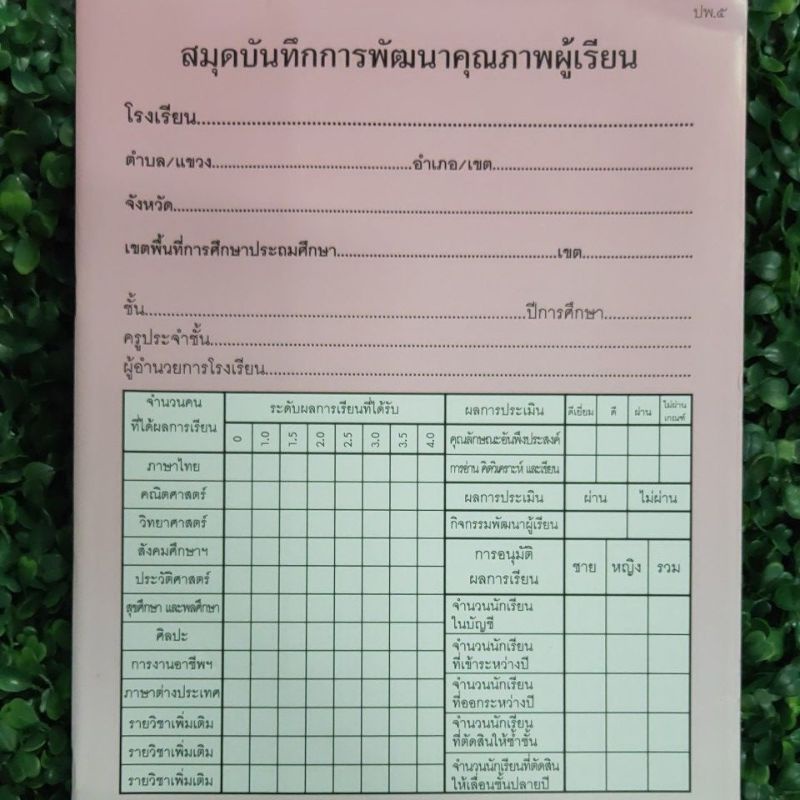 ปพ.๕
สมุดบันทึกการพัฒนาคุณภาพผู้เรียน
โรงเรียน
ตำบล/แขวง อำเภอ/เขต
จังหวัด
เขตพื้นที่การศึกษาประถมศึกษา เขต
ชั้น ปีการศึกษา
ครูประจำชั้น
ผู้อำนวยการโรงเรียน
จำนวนคน
ที่ได้ผลการเรียน
ระดับผลการเรียนที่ได้รับ
0 1.0 1.5 2.0 2.5 3.0 3.5 4.0
ภาษาไทย
คณิตศาสตร์
วิทยาศาสตร์
สังคมศึกษาฯ
ประวัติศาสตร์
สุขศึกษา และพลศึกษา
ศิลปะ
การงานอาชีพฯ
ภาษาต่างประเทศ
รายวิชาเพิ่มเติม
รายวิชาเพิ่มเติม
รายวิชาเพิ่มเติม
ผลการประเมิน ดีเยี่ยม ดี ผ่าน ไม่ผ่าน
เกณฑ์
คุณลักษณะอันพึงประสงค์
การอ่าน คิดวิเคราะห์ และเขียน
ผลการประเมิน ผ่าน ไม่ผ่าน
กิจกรรมพัฒนาผู้เรียน
การอนุมัติ
ผลการเรียน
ชาย หญิง รวม
จำนวนนักเรียน
ในบัญชี
จำนวนนักเรียน
ที่เข้าระหว่างปี
จำนวนนักเรียน
ที่ออกระหว่างปี
จำนวนนักเรียน
ที่ตัดสินให้ซ้ำชั้น
จำนวนนักเรียนที่ตัดสิน
ให้เลื่อนชั้นปลายปี